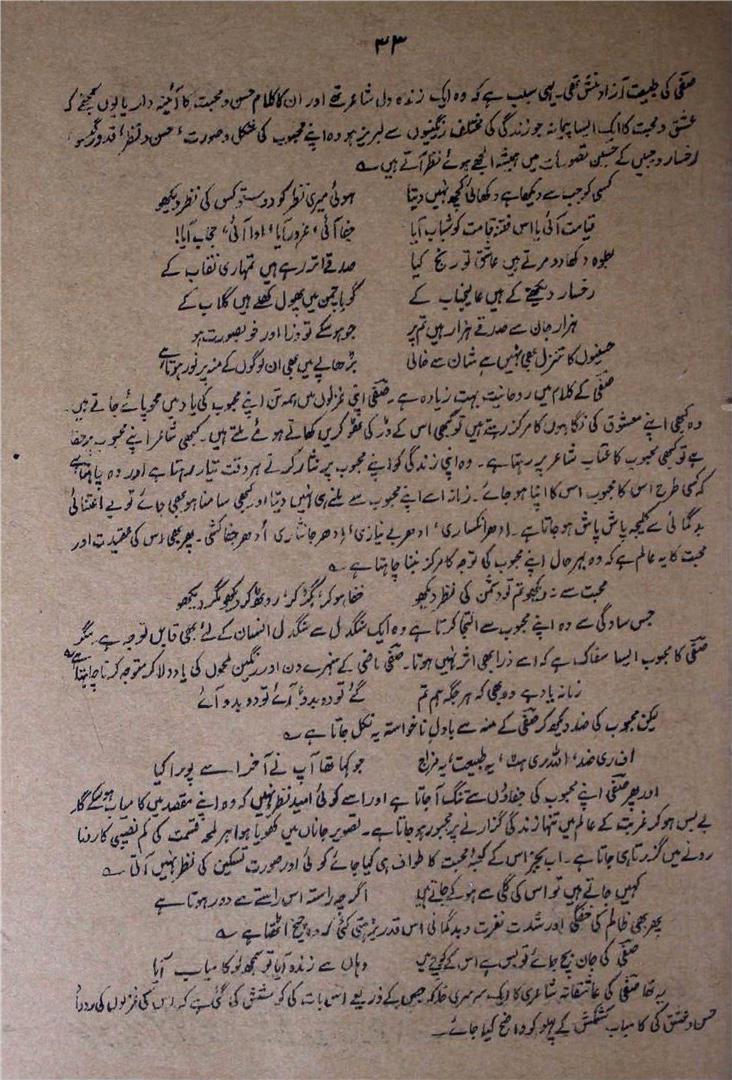 ۳۳
صفی کی طبیعت آزاد منش تھی۔ یہی سبب ہے کہ وہ ایک زندہ دل شاعر تھے اور ان کا کلام حسن و محبت کا آئینہ دار یا یوں کہیئے کہ
عشق و محبت کا ایک ایسا پیمانہ جو زندگی کی مختلف رنگینیوں سے لبریز ہو وہ اپنے محبوب کی شکل و صورت، حسن و نظر، قد و گیسو،
رخسار و جبیں کے حسین تصورات میں ہمیشہ الجھے ہوئے نظر آتے ہیں ؎
کسی کو جب سے دیکھا ہے دکھائی کچھ نہیں دیتا ہوئی میری نظر کو دوستو کس کی نظر دیکھو
قیامت آئی یا اس فتنہ قامت کو شباب آیا جفا آئی، غرور آیا، ادا آئی، حجاب آیا!
جلوہ دکھا دو مرتے ہیں عاشق تو رنج کیا صدقے اتر رہے ہیں تمہاری نقاب کے
رخسار دیکھتے کے ہیں عالیجناب کے گویا چمن میں پھول کھلے ہیں گلاب کے
ہزار جان سے صدقے ہزار ہیں تم پر جو ہو سکے تو ذرا اور خوبصورت ہو
حسینوں کا تنزل بھی نہیں ہے شان سے خالی بڑھاپے میں بھی ان لوگوں کے منہ پر نور ہوتا ہے
صفی کے کلام میں روحانیت بہت زیادہ ہے۔ صفی اپنی غزلوں میں ہمہ تن اپنے محبوب کی یاد میں محو پائے جاتے ہیں۔
وہ کبھی اپنے معشوق کی نگاہوں کا مرکز رہتے ہیں تو کبھی اس کے در کی ٹھوکریں کھاتے ہوئے ملتے ہیں۔ کبھی شاعر اپنے محبوب پر خفا
ہے تو کبھی محبوب کا عتاب شاعر پر رہتا ہے۔ وہ اپنی زندگی کو اپنے محبوب پر نثار کرنے ہر وقت تیار رہتا ہے اور وہ چاہتا ہے
کہ کسی طرح اس کا محبوب اس کا اپنا ہو جائے۔ زمانہ اسے اپنے محبوب سے ملنے ہی نہیں دیتا اور کبھی سامنا ہو بھی جائے تو بے اعتنائی
بدگمانی سے کلیجہ پاش پاش ہو جاتا ہے۔ ادھر انکساری، ادھر بے نیازی، ادھر جانثاری اُدھر جفاکشی۔ پھر بھی اس کی عقیدت اور
محبت کا یہ عالم ہے کہ وہ بہر حال اپنے محبوب کی توجہ کا مرکز بننا چاہتا ہے ؎
محبت سے نہ دیکھو تم تو دشمن کی نظر دیکھو خفا ہو کر، بگڑ کر، روٹھ کر دیکھو مگر دیکھو
جس سادگی سے وہ اپنے محبوب سے التجا کرتا ہے وہ ایک سنگدل سے سنگدل انسان کے لئے بھی قابل توجہ ہے مگر
صفی کا محبوب ایسا سفاک ہے کہ اسے ذرا بھی اثر نہیں ہوتا۔ صفی ماضی کے سنہرے دن اور رنگین لمحوں کی یاد دلا کر متوجہ کرنا چاہتا ہے ؎
زمانہ یاد ہے وہ بھی کہ ہر جگہ ہم تم گئے تو دو بدو، آئے تو دو بدو آئے
لیکن محبوب کی ضد دیکھ کر صفی کے منہ سے بادلِ ناخواستہ یہ نکل جاتا ہے ؎
اف ری ضد، اللہ ری ہٹ، یہ طبیعت، یہ مزاج جو کہا تھا آپ نے آخر اسے پورا کیا
اور پھر صفی اپنے محبوب کی جفاؤں سے تنگ آ جاتا ہے اور اسے کوئی امید نظر نہیں کہ وہ اپنے مقصد میں کامیاب ہو سکے گا۔
بے بس ہو کر غربت کے عالم میں تنہا زندگی گزارنے پر مجبور ہو جاتا ہے۔ تصویر جاناں میں کھویا ہوا ہر لمحہ قسمت کی کم نصیبی کا رونا
رونے میں گزرتا ہی جاتا ہے۔ اب بجز اس کے کوچۂ محبت کا طواف ہی کیا جائے کوئی اور صورت تسکین کی نظر نہیں آتی ؎
کہیں جاتے ہیں تو اس کی گلی سے ہو کے جاتے ہیں اگرچہ راستہ اس راستے سے دور ہوتا ہے
پھر بھی ظالم کی خفگی اور شدت نفرت و بدگمانی اس قدر بڑھتی گئی کہ وہ چیخ اٹھتا ہے ؎
صفی کی جان بچ جائے تو بس ہے اس کے کوچے میں وہاں سے زندہ آیا تو سمجھ لو کامیاب آیا
یہ تھا صفی کی عاشقانہ شاعری کا ایک سرسری خاکہ جس کے ذریعے اس بات کی کوشش کی گئی ہے کہ اس کی غزلوں کی
حسن و عشق کی کامیاب کشمکش کے پہلو کو واضح کیا جائے۔